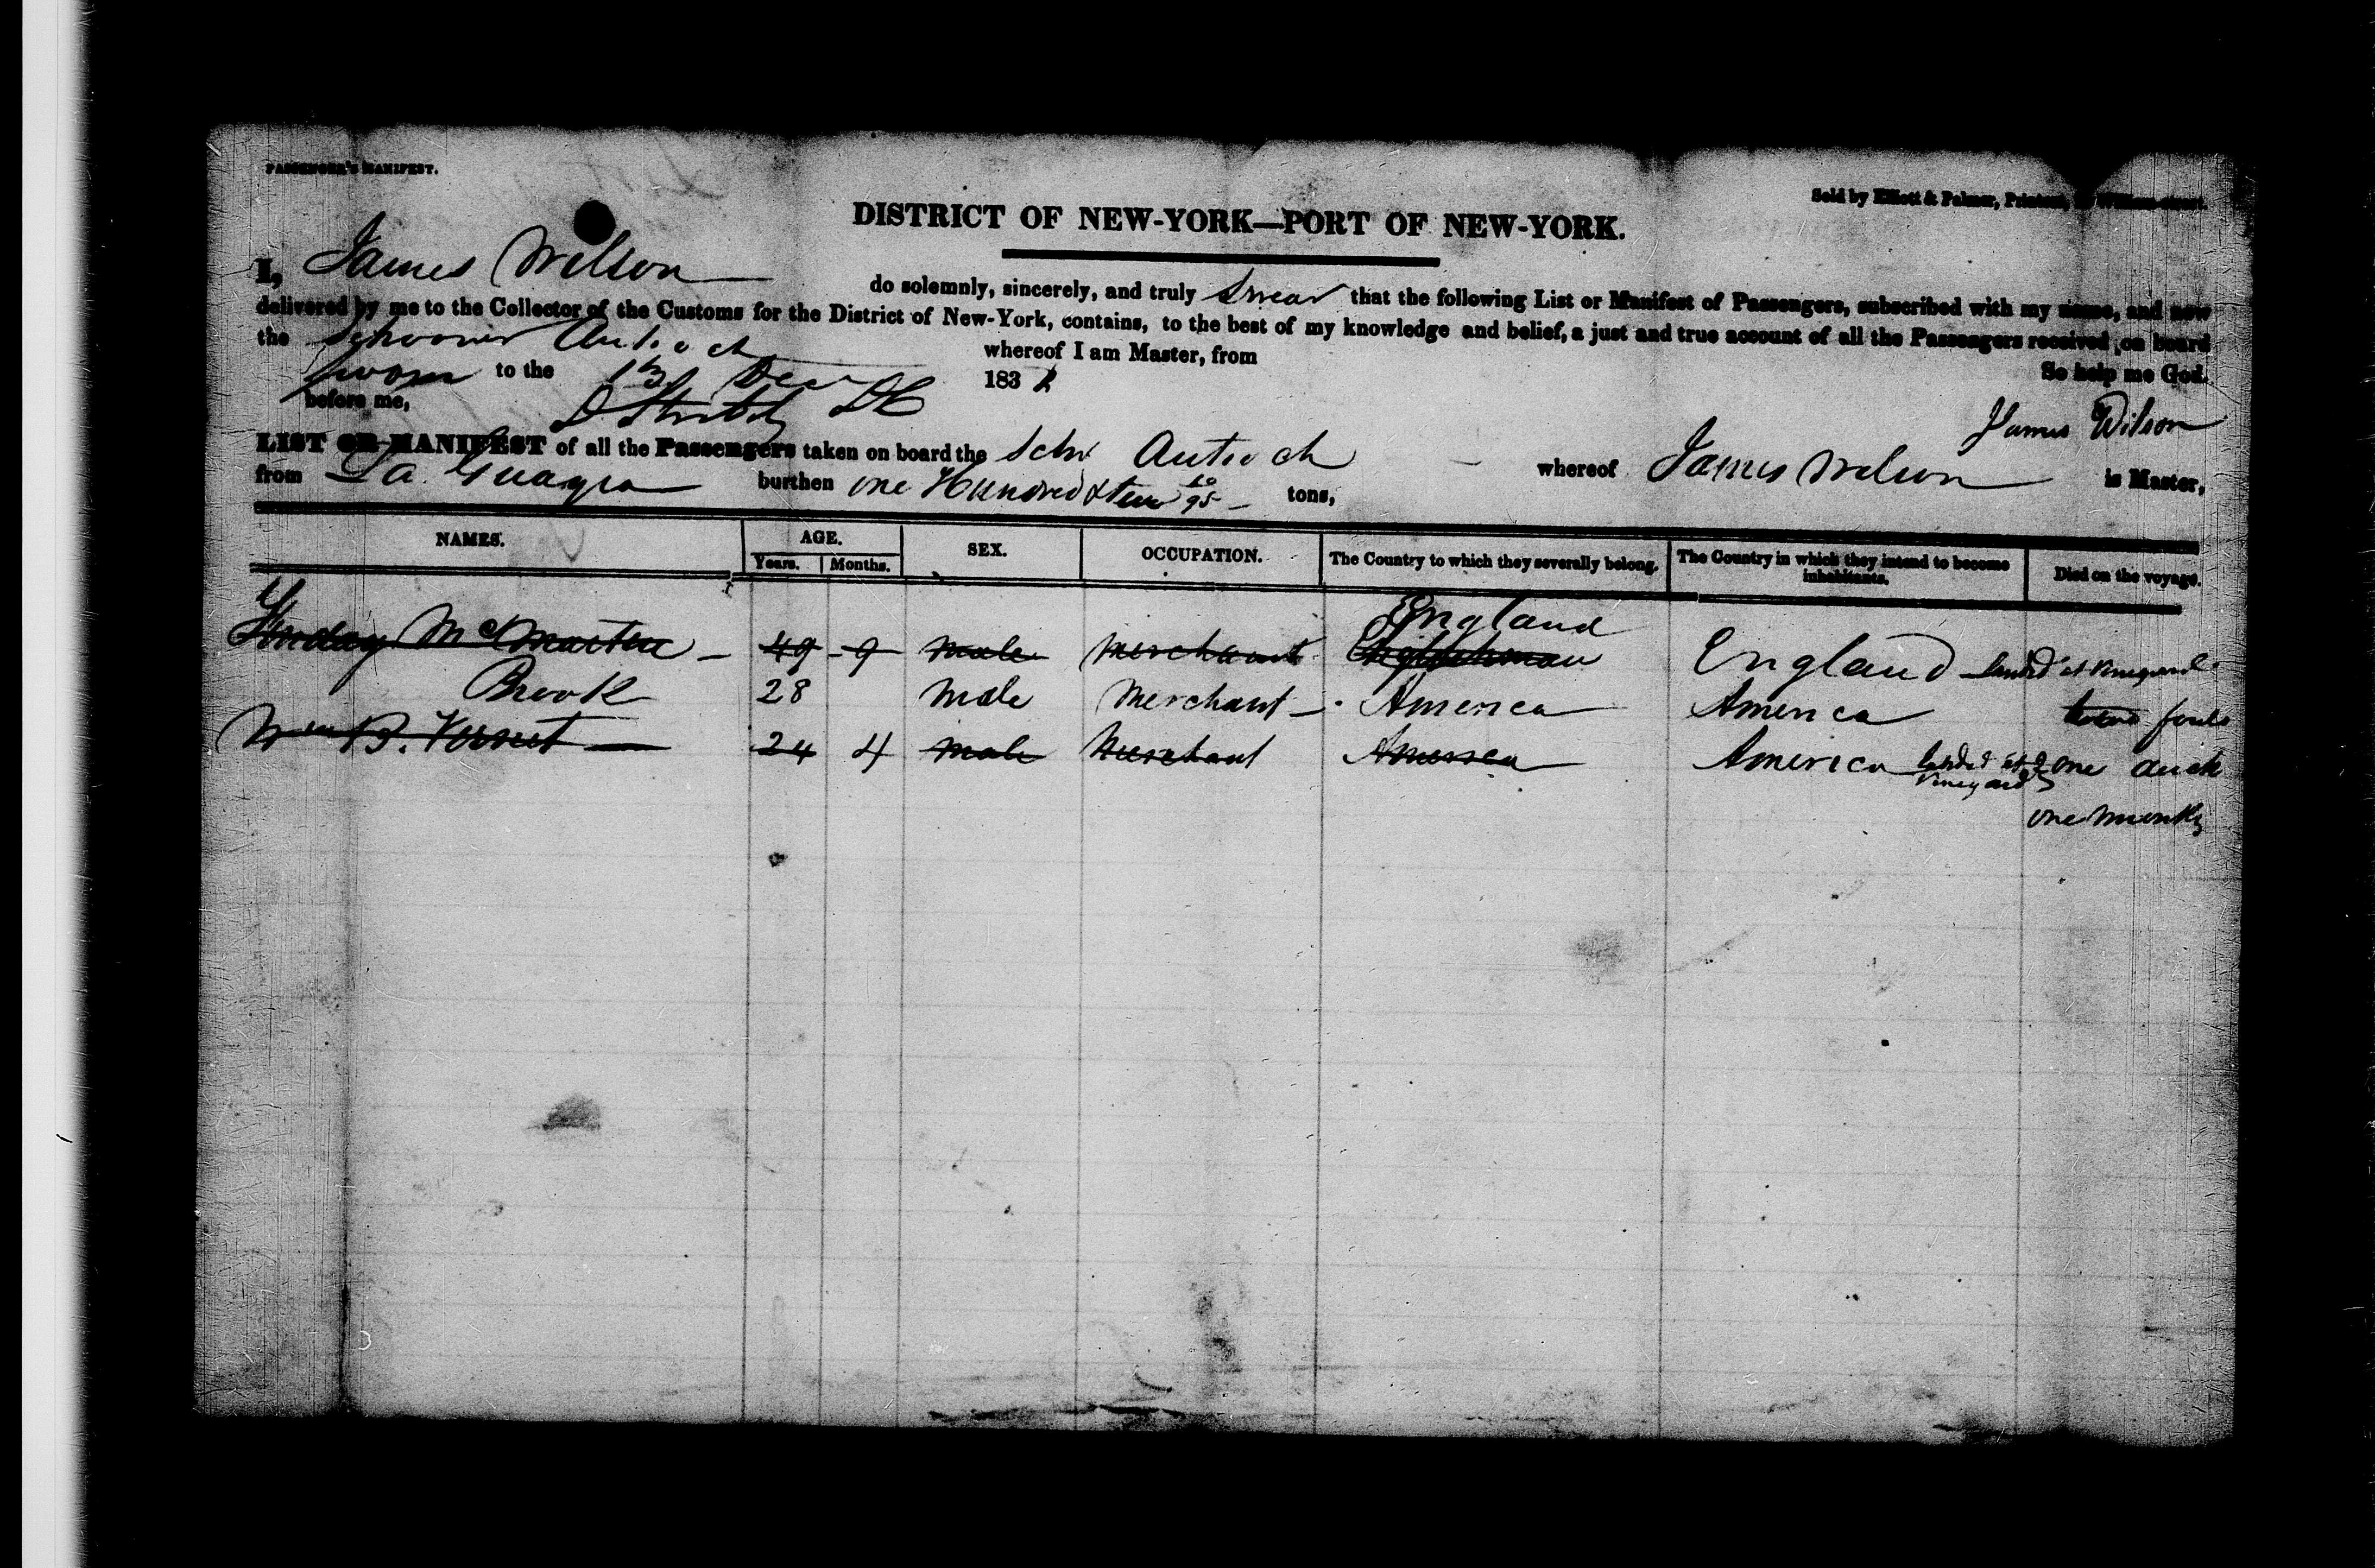 PASSENGER'S MANIFEST.
Sold by Elliott & Palmer, Printers, William-street.
DISTRICT OF NEW-YORK—PORT OF NEW-YORK.
I, James Wilson do solemnly, sincerely, and truly Swear that the following List or Manifest of Passengers, subscribed with my name, and now
delivered by me to the Collector of the Customs for the District of New-York, contains, to the best of my knowledge and belief, a just and true account of all the Passengers received on board
the Schooner Antioch whereof I am Master, from
Sworn to the 13 Dec 183 So help me God.
before me, James Wilson
LIST OR MANIFEST of all the Passengers taken on board the Schr Antioch whereof James Wilson is Master,
from La Guayra burthen one Hundred & ten 10/95 tons,
NAMES. AGE. SEX. OCCUPATION. The Country to which they severally belong. The Country in which they intend to become inhabitants. Died on the voyage.
Years. Months.
England
McMartin 49 9 male merchant Englishman England landed at Vineyard
Brook 28 Male Merchant America America fouls
Wm B. 24 4 male Merchant America America landed at Vineyard one duck
one munky